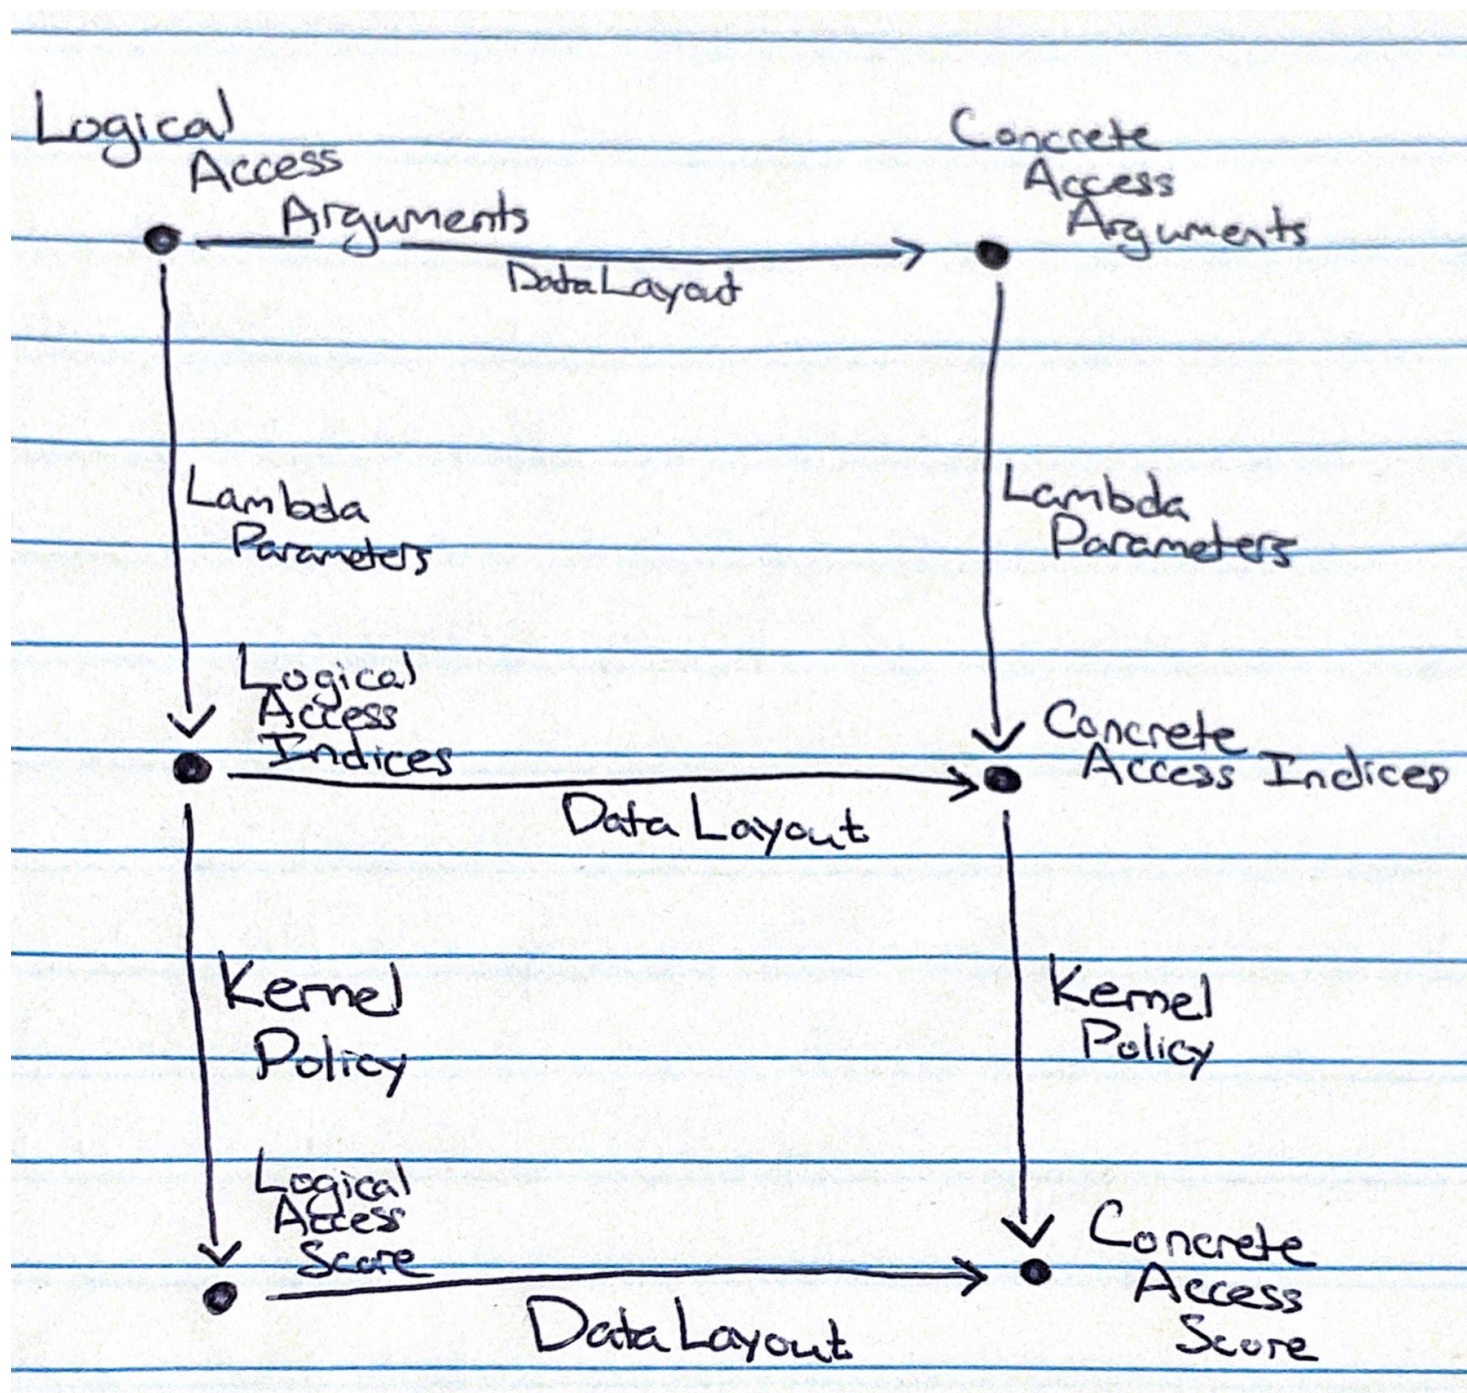 Logical
Access
Arguments
Concrete
Access
Arguments
Data Layout
Lambda
Parameters
Lambda
Parameters
Logical
Access
Indices
Concrete
Access Indices
Data Layout
Kernel
Policy
Kernel
Policy
Logical
Access
Score
Concrete
Access
Score
Data Layout